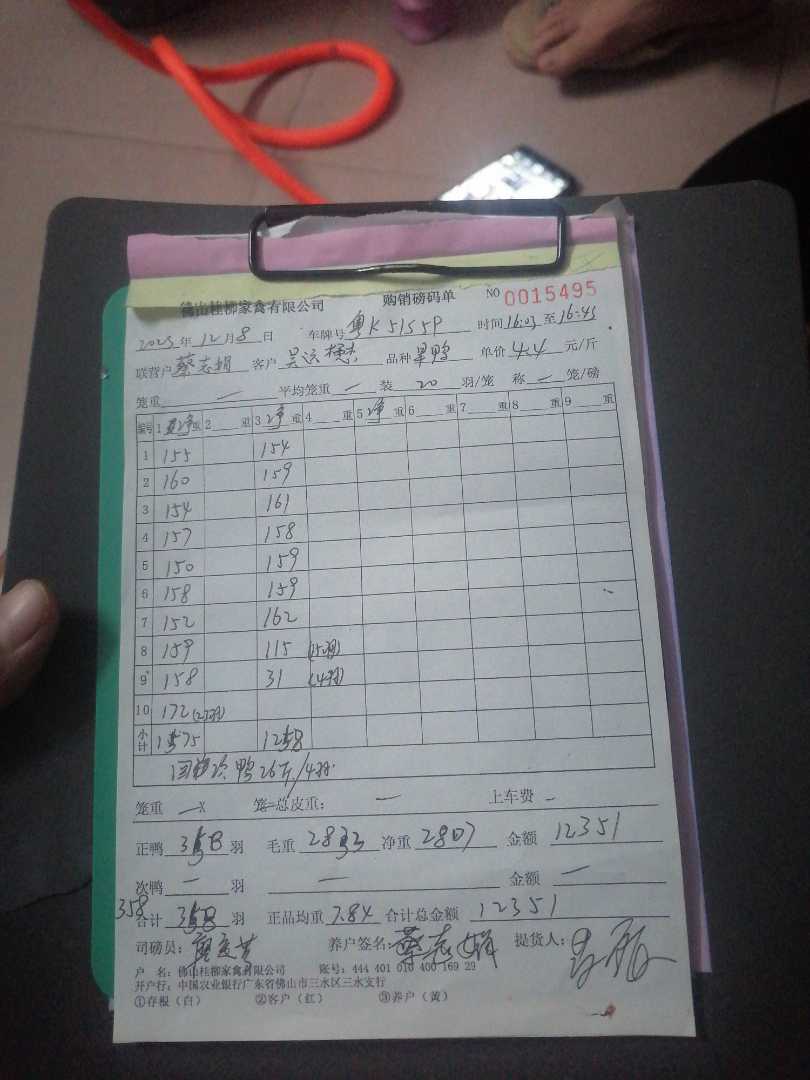 佛山桂柳家禽有限公司 购销磅码单 NO 0015495
2023年12月8日 车牌号 粤K5155P 时间16:03至16:43
联营户 蔡志娟 客户 吴运 品种 鸭 单价 4.4 元/斤
笼重 一 平均笼重 一 装 20 羽/笼 称 一 笼/磅
编号 1 净重 2 重 3 净重 4 重 5 净重 6 重 7 重 8 重 9 重
1 155 154
2 160 159
3 154 161
4 157 158
5 150 159
6 158 159
7 152 162
8 159 115 (15羽)
9 158 31 (4羽)
10 172 (23羽)
小计 1575 1258
次鸭26斤/4羽
笼重 一 X 笼=总皮重: 一 上车费 一
正鸭 358 羽 毛重 2833 净重 2807 金额 12351
次鸭 一 羽 一 金额 一
358
合计 358 羽 正品均重 7.84 合计总金额 12351
司磅员: 养户签名: 蔡志娟 提货人:
户 名: 佛山桂柳家禽有限公司 账号: 444 401 010 400 169 29
开户行: 中国农业银行广东省佛山市三水区三水支行
①存根(白) ②客户(红) ③养户(黄)